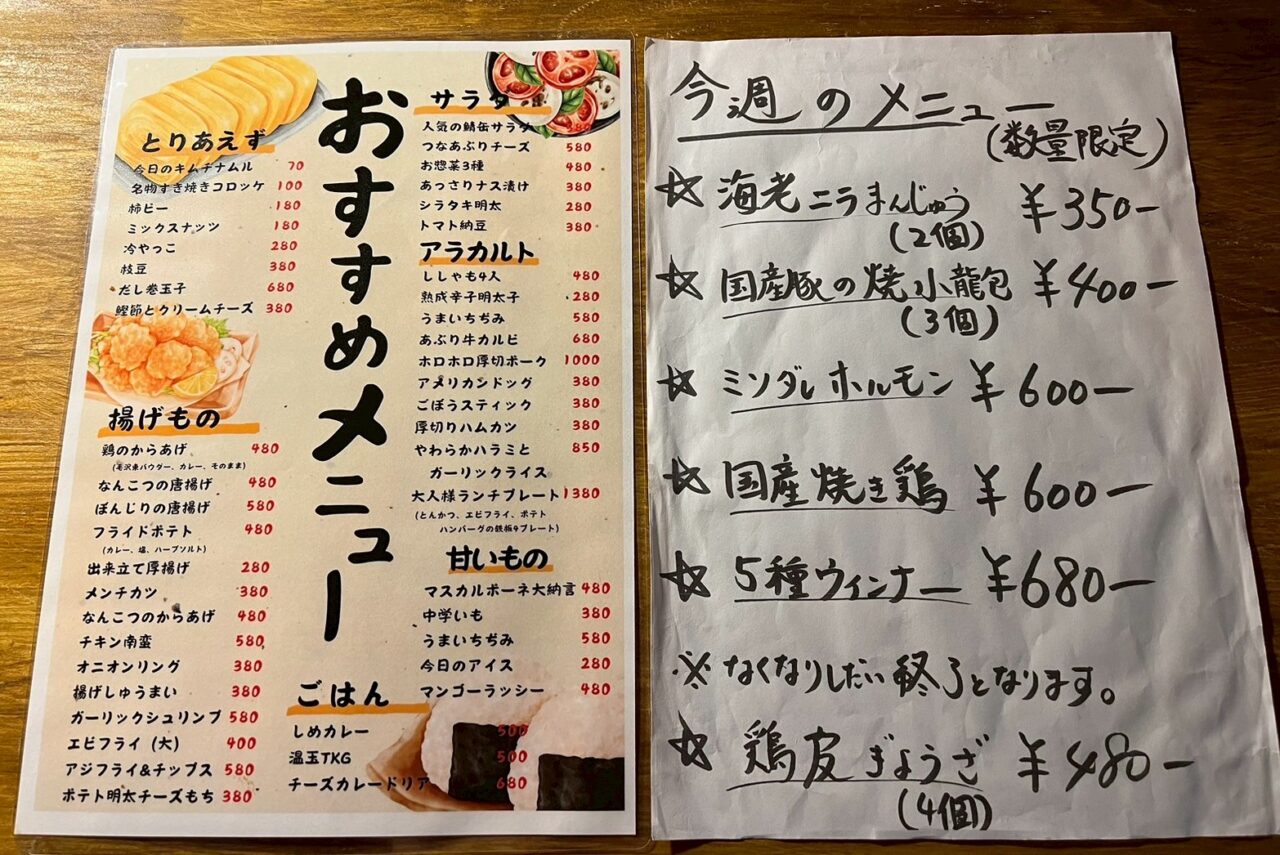 おすすめメニュー
とりあえず
今日のキムチナムル 70
名物すき焼きコロッケ 100
柿ピー 180
ミックスナッツ 180
冷やっこ 280
枝豆 380
だし巻玉子 680
鰹節とクリームチーズ 380
揚げもの
鶏のからあげ 480
(毛沢東パウダー、カレー、そのまま)
なんこつの唐揚げ 480
ぼんじりの唐揚げ 580
フライドポテト 480
(カレー、塩、ハーブソルト)
出来立て厚揚げ 280
メンチカツ 380
なんこつのからあげ 480
チキン南蛮 580
オニオンリング 380
揚げしゅうまい 380
ガーリックシュリンプ 580
エビフライ (大) 400
アジフライ&チップス 580
ポテト明太チーズもち 380
サラダ
人気の鯖缶サラダ
つなあぶりチーズ 580
お惣菜3種 480
あっさりナス漬け 380
シラタキ明太 280
トマト納豆 380
アラカルト
ししゃも4人 480
熟成辛子明太子 280
うまいちぢみ 580
あぶり牛カルビ 680
ホロホロ厚切ポーク 1000
アメリカンドッグ 380
ごぼうスティック 380
厚切りハムカツ 380
やわらかハラミと 850
ガーリックライス
大人様ランチプレート 1380
(とんかつ、エビフライ、ポテト
ハンバーグの鉄板4プレート)
甘いもの
マスカルポーネ大納言 480
中学いも 380
うまいちぢみ 580
今日のアイス 280
マンゴーラッシー 480
ごはん
しめカレー 500
温玉TKG 500
チーズカレードリア 680
今週のメニュー
(数量限定)
☆ 海老ニラまんじゅう ¥350-
(2個)
☆ 国産豚の焼小龍包 ¥400-
(3個)
☆ ミソダレホルモン ¥600-
☆ 国産焼き鶏 ¥600-
☆ 5種ウィンナー ¥680-
※なくなりしだい終了となります。
☆ 鶏皮ぎょうざ ¥480-
(4個)